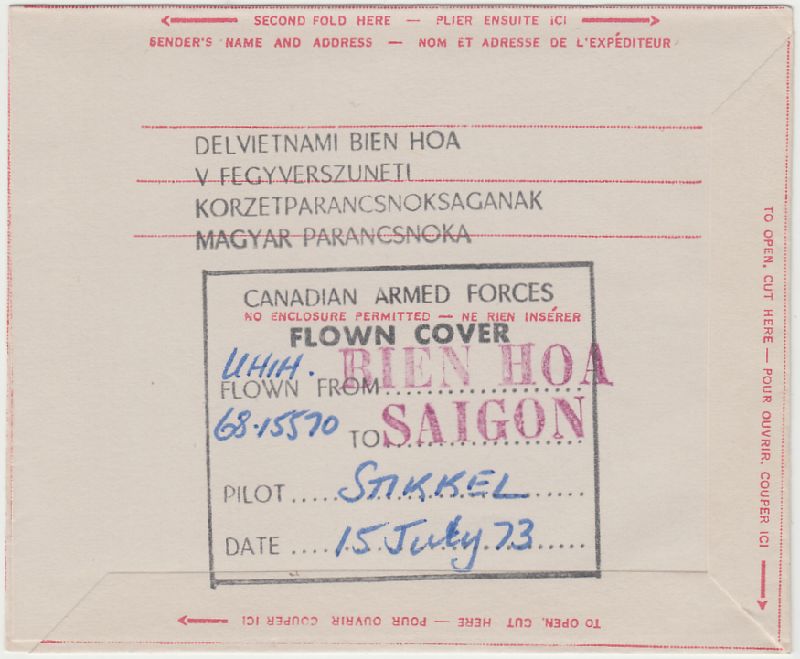 SECOND FOLD HERE — PLIER ENSUITE ICI
SENDER'S NAME AND ADDRESS — NOM ET ADRESSE DE L'EXPÉDITEUR
DELVIETNAMI BIEN HOA
V FEGYVERSZUNETI
KORZETPARANCSNOKSAGANAK
MAGYAR PARANCSNOKA
CANADIAN ARMED FORCES
NO ENCLOSURE PERMITTED — NE RIEN INSÉRER
FLOWN COVER
UH1H.
FLOWN FROM BIEN HOA
68-15570 TO SAIGON
PILOT ..... STIKKEL
DATE .... 15 July 73
TO OPEN, CUT HERE — POUR OUVRIR, COUPER ICI
TO OPEN, CUT HERE — POUR OUVRIR COUPER ICI